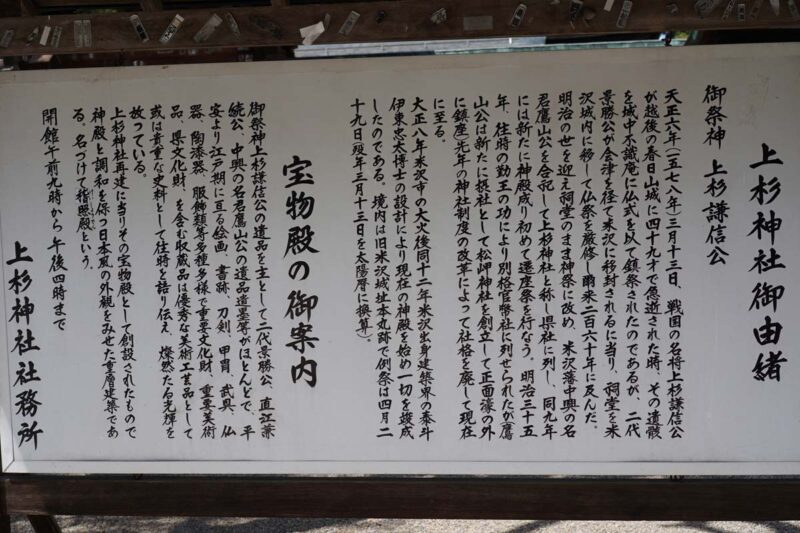 上杉神社御由緒
御祭神 上杉謙信公
天正六年(一五七八年)三月十三日、戦国の名将上杉謙信公
が越後の春日山城に四十九才で急逝された時、その遺骸
を城中不識庵に仏式を以て鎮祭されたのであるが、二代
景勝公が会津を径て米沢に移封されるに当り、祠堂を米
沢城内に移して仏祭を厳修し爾来二百六十年に及んだ。
明治の世を迎え祠堂のまま神祭に改め、米沢藩中興の名
君鷹山公を合祀して上杉神社と称し県社に列し、同九年
には新たに神殿成り初めて遷座祭を行なう。明治三十五
年、往時の勤王の功により別格官幣社に列せられたが鷹
山公は新たに摂社として松岬神社を創立して正面濠の外
に鎮座先年の神社制度の改革によって社格を廃して現在
に至る。
大正八年米沢市の大火後同十二年米沢出身建築界の泰斗
伊東忠太博士の設計により現在の神殿を始め一切を竣成
したのである。境内は旧米沢城址本丸跡で例祭は四月二
十九日頃年三月十三日を太陽暦に換算)。
宝物殿の御案内
御祭神上杉謙信公の遺品を主として二代景勝公、直江兼
続公、中興の名君鷹山公の遺品遺墨等がほとんどで、平
安より江戸期に亘る絵画、書跡、刀剣、甲冑、武具、仏
器、陶漆器、服飾類等多種多様で重要文化財、重要美術
品、県文化財、を含む収蔵品は優秀な美術工芸品として
或は貴重な史料として往時を語り伝え、燦然たる光輝を
放っている。
上杉神社再建に当りその宝物殿として創設されたもので
神殿と調和を保つ日本風の外観をみせた重層建築であ
る。名づけて稽照殿という。
開館午前九時から午後四時まで
上杉神社社務所